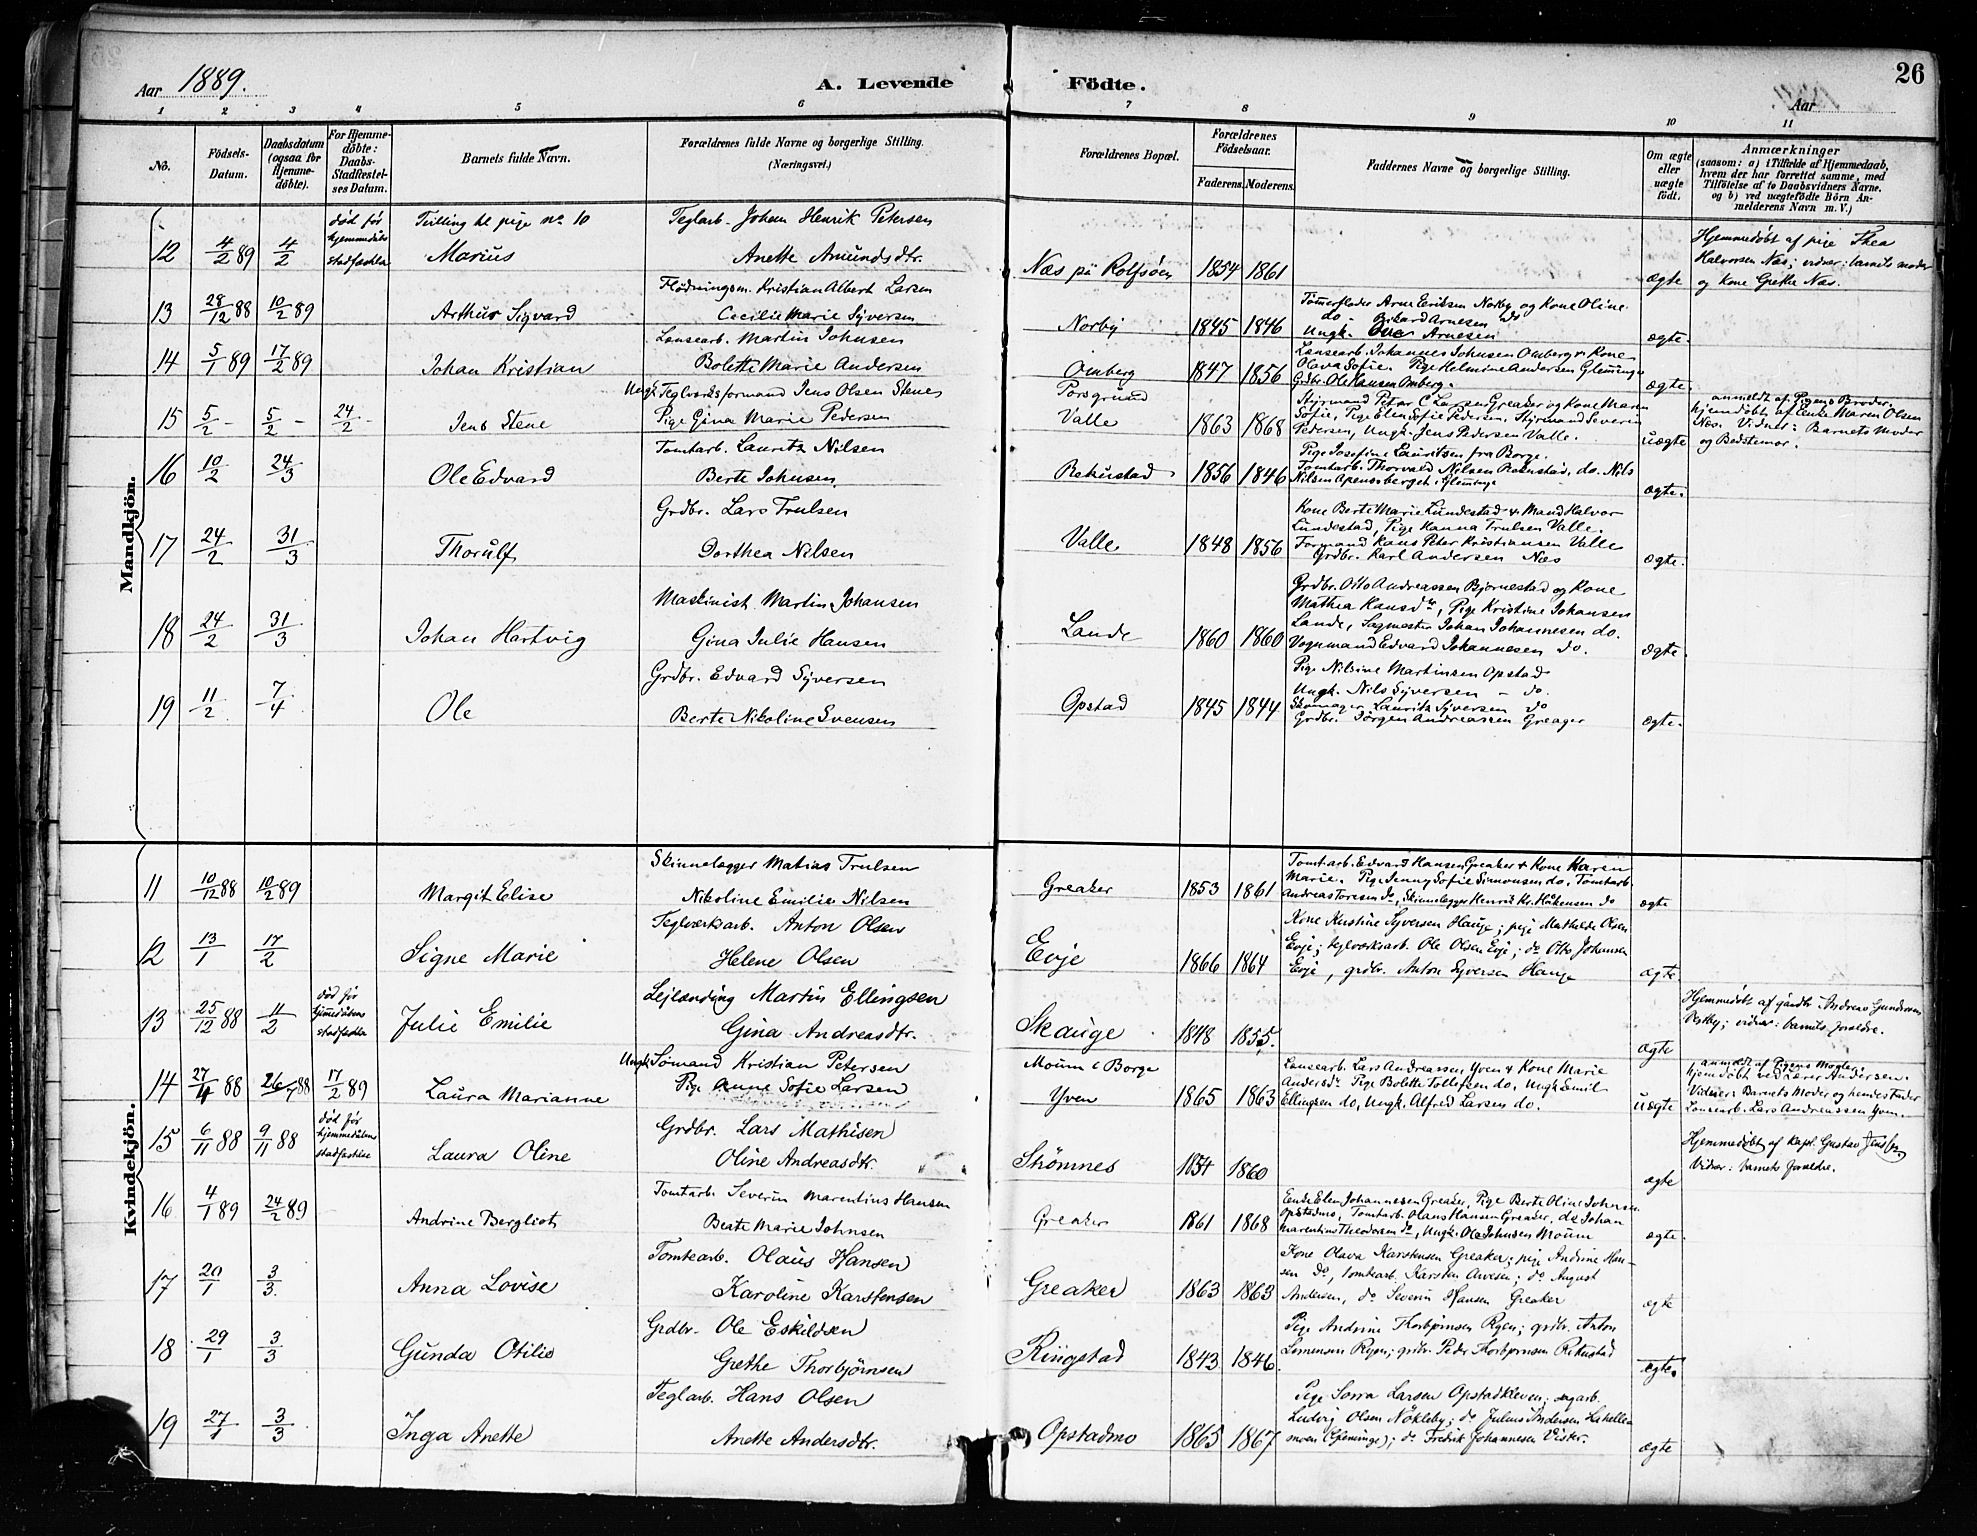 Aar 1889.
A. Levende Födte.
Aar
26
1 2 3 4 5 6 7 8 9 10 11
No.
Födsels-Datum.
Daabsdatum (ogsaa for Hjemmedöbte).
For Hjemmedöbte: Daabs-Stadfæstelses Datum.
Barnets fulde Navn.
Forældrenes fulde Navne og borgerlige Stilling. (Næringsvei.)
Forældrenes Bopæl.
Forældrenes Födselsaar.
Faderens. Moderens.
Faddernes Navne og borgerlige Stilling.
Om ægte eller uægte födt.
Anmærkninger
(saasom: a) i Tilfælde af Hjemmedaab, hvem der har forrettet samme, med Tilföielse af to Daabsvidners Navne. og b) ved uægtefödte Börn Anmelderens Navn m. V.)
Mandkjön.
12 4/2 89 4/2 død før hjemmedåben stadfæstta Tvilling til pige no 10 Marius
Teglarb. Johan Henrik Petersen
Anette Amundsdtr.
Næs på Rolfsöen 1854 1861 ægte
Hjemmedöbt af pige Thea
Halvorsen Næs; vidner: barnets moder
og kone Grethe Næs.
13 28/12 88 10/2 89 Arthur Sigvard
Flödningsm. Kristian Albert Larsen
Cecilie Marie Syversen
Norby 1845 1846
Tömmerfløder Arne Eriksen Norby og Kone Oline
do Rikard Arnesen do
Ungk. Ove Arnesen
ægte.
14 5/1 89 17/2 89 Johan Kristian
Lansearb. Martin Johnsen
Bolette Marie Andersen
Omberg 1847 1856
Lansearb. Johannes Johnsen Omberg & Kone
Olava Sofie. Pige Helmine Andersen Glemminge
Grdbr. Ole Hansen Omberg.
ægte.
15 5/2 - 5/2 - 24/2 - Jens Stene
Ungk. Teglværksformand Jens Olsen Stenes
Pige Gina Marie Pedersen
Porsgrund
Valle 1863 1868
Styrmand Peter C Larsen Greaker og Kone Maren
Sofie, Pige Elen Sofie Pedersen, Styrmand Severin
Pedersen, Ungk. Jens Pedersen Valle.
uægte
anmeldt af Pigens Broder.
hjemdöbt af Enke Maren Olsen
Næs. Vidner: Barnets Moder
og Bedstemor.
16 10/2 24/3 Ole Edvard
Tomtarb. Lauritz Nilsen
Berte Johnsen,
Rekustad 1856 1846
Pige Josefine Lauritsen fra Borge.
Tomtarb. Thorvald Nilsen Rekustad, do. Nils
Nilsen Apenesberget i Glemminge
ægte.
17 24/2 31/3 Thorulf
Grdbr. Lars Trulsen
Dorthea Nilsen
Valle 1848 1856
Kone Berte Marie Lundestad & Mand Halvor
Lundestad, Pige Hanna Trulsen Valle.
Formand Hans Peter Kristiansen Valle
Grdbr. Karl Andersen Næs
ægte.
18 24/2 31/3 Johan Hartvig
Maskinist Martin Johansen
Gina Julie Hansen
Lande 1860 1860
Grdbr. Otto Andreassen Bjørnestad og Kone
Mathea Hansdtr, Pige Kristine Johansen
Lande, Sagmester Johan Johannesen do.
Vognmand Edvard Johannesen do.
ægte.
19 11/2 7/4 Ole
Grdbr. Edvard Syversen
Berte Nikoline Svensen
Opstad 1845 1844
Pige Nilsine Martinsen Opstad
Ungk. Nils Syversen - do.
Skomager Lauritz Syversen do
Grdbr. Jörgen Andreassen Greager
ægte.
Kvindekjön.
11 10/12 88 10/2 89 Margit Elise
Skinnelægger Matias Trulsen
Nikoline Emilie Nilsen
Greaker 1853 1861
Tomtarb. Edvard Hansen Greaker & Kone Karen
Marie. Pige Jenny Sofie Simonsen do. Tomtarb.
Andreas Toresen do, Skinnelægger Henrik Kr. Håkensen do
ægte
12 13/1 17/2 Signe Marie
Teglværksarb. Anton Olsen
Helene Olsen
Evje 1866 1864
Kone Kristine Syversen Hauge; pige Mathilde Olsen
Evje; teglværksarb. Ole Olsen Evje; do Otto Johansen
Evje, grdbr. Anton Syversen Hauge
ægte
13 25/12 88 11/2 død før hjemmedåbens stadfæstta Julie Emilie
Lejlænding Martin Ellingsen
Gina Andreasdtr.
Skauge 1848 1855.
ægte
Hjemmedöbt af gårdbr. Andreas Gundersen
Østby; vidner: barnets forældre.
14 27/4 88 26/7 88 17/2 89 Laura Marianne
Ungk. Sømand Kristian Petersen
Pige Anne Sofie Larsen
Moum i Borge
Yven 1865 1863
Lansearb. Lars Andreassen Yven & Kone Marie
Andersdtr Pige Bolette Tollefsen do. Ungk. Emil
Ellingsen do, Ungk. Alfred Larsen do.
uægte
anmeldt af Pigens Moder.
hjemdöbt ved Lærer Andersen.
Vidner: Barnets Moder og hendes Fader
Lansearb. Lars Andreassen Yven.
15 6/11 88 9/11 88 død før hjemmedåbens stadfæstelse Laura Oline
Grdbr. Lars Mathisen
Oline Andreasdtr.
Strömnes 1854 1860
ægte
Hjemmedöbt af kapt. Gustav
Vidner: barnets forældre.
16 4/1 89 24/2 89 Andrine Bergliot
Tomtarb. Severin Marentius Hansen
Beate Marie Johnsen
Greaker 1861 1868
Enke Elen Johannesen Greaker, Pige Berte Oline Johnsen
Opstadmo, Tomtarb. Olaus Hansen Greaker, do Johan
Marentius Theodorsen do, Ungk. Ole Johnsen Moum
ægte.
17 20/1 3/3. Anna Lovise
Tomtearb. Olaus Hansen
Karoline Karstensen
Greaker 1863 1863
Kone Olava Karstensen Greaker; pige Andrine Han-
sen do, tomtearb. Karsten Arvesen; do August
Andersen, do Severin Hansen Greaker
ægte
18 29/1 3/3 Gunda Otilie
Grdbr. Ole Eskildsen
Grethe Thorbjörnsen
Ringstad 1843 1846.
Pige Andrine Thorbjörnsen Ryen; grdbr. Anton
Ryen; grdbr. Peder Thorbjørnsen Rekustad
ægte.
19 27/1 3/3 Inga Anette
Teglarb. Hans Olsen
Anette Andersdtr.
Opstadmo 1865 1867
Pige Sørra Larsen Opstadkleven; sagarb.
Ludvig Olsen Nökleby; do Julius Andersen Lahelle-
moen (Glemminge); do Fredrik Johannesen Vister.
ægte